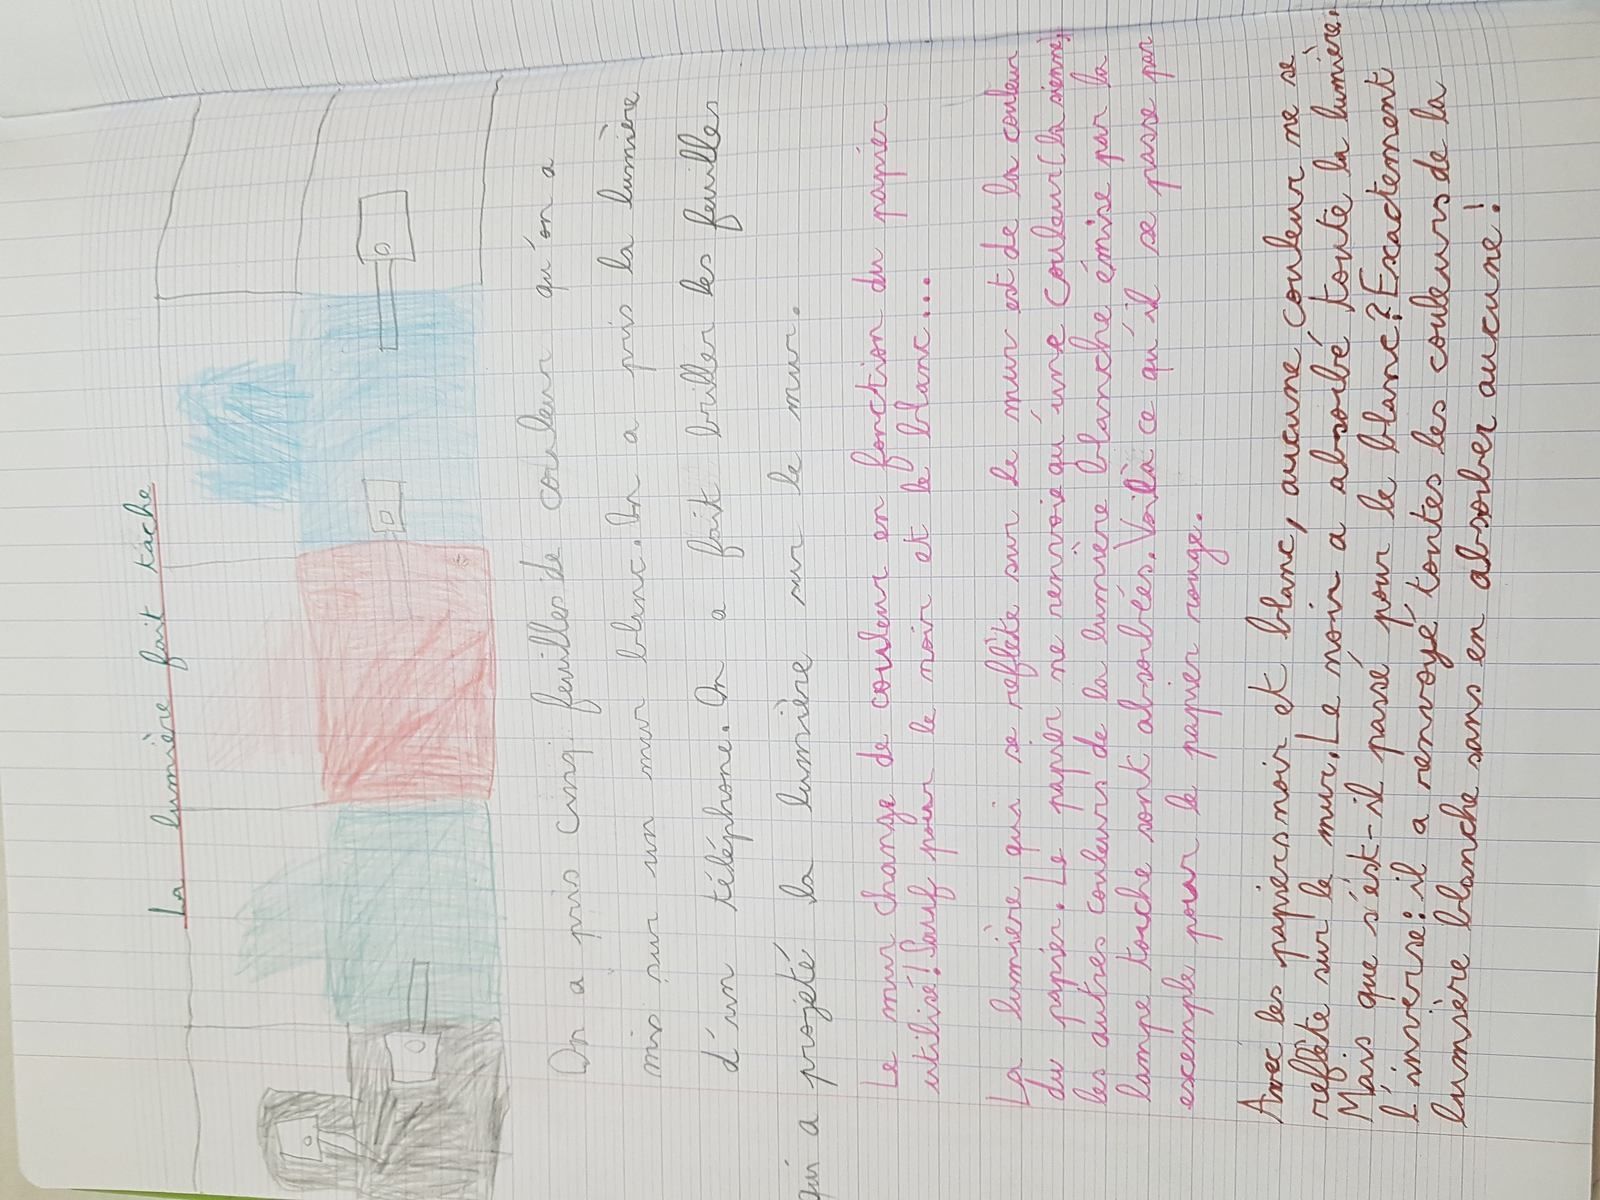 La lumière fait tâche
On a pris cinq feuilles de couleur qu'on a
mis sur un mur blanc. On a pris la lumière
d'un téléphone. On a fait briller les feuilles
qui a projeté la lumière sur le mur.
Le mur change de couleur en fonction du papier
utilisé! Sauf pour le noir et le blanc...
La lumière qui se reflète sur le mur est de la couleur
du papier. Le papier ne renvoie qu'une couleur (la sienne),
les autres couleurs de la lumière blanche émise par la
lampe touche sont absorbés. Voilà ce qu'il se passe par
exemple pour le papier rouge.
Avec les papiers noir et blanc, aucune couleur ne se
reflète sur le mur. Le noir a absorbé toute la lumière.
Mais que s'est-il passé pour le blanc? Exactement
l'inverse: il a renvoyé toutes les couleurs de la
lumière blanche sans en absorber aucune!